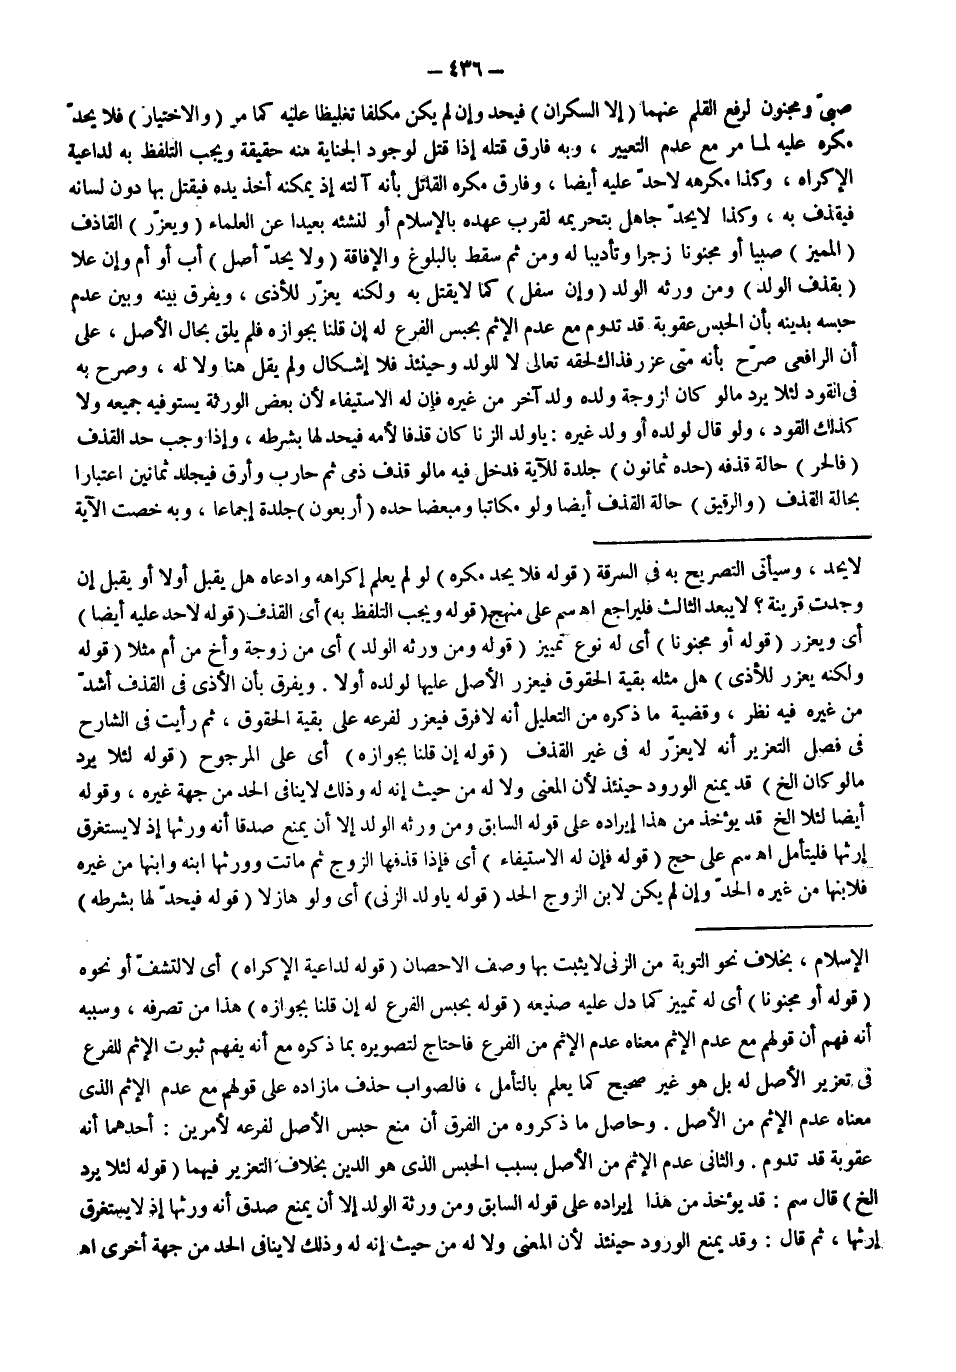 — ٤٣٦ —
صبىّ ومجنون لرفع القلم عنهما ( إلا السكران ) فيحد وإن لم يكن مكلفا تغليظا عليه كما مر ( والاختيار ) فلا يحدّ
مكره عليه لما مر مع عدم التعيير ، وبه فارق قتله إذا قتل لوجود الجناية منه حقيقة ويجب التلفظ به لداعية
الإكراه ، وكذا مكرهه لاحدّ عليه أيضا ، وفارق مكره القاتل بأنه آلته إذ يمكنه أخذ يده فيقتل بها دون لسانه
فيقذف به ، وكذا لايحدّ جاهل بتحريمه لقرب عهده بالإسلام أو لنشئه بعيدا عن العلماء ( ويعزّر ) القاذف
( المميز ) صبيا أو مجنونا زجرا وتأديبا له ومن ثم سقط بالبلوغ والإفاقة ( ولا يحدّ أصل ) أب أو أم وإن علا
( بقذف الولد ) ومن ورثه الولد ( وإن سفل ) كما لايقتل به ولكنه يعزّر للأذى ، ويفرق بينه وبين عدم
حبسه بدينه بأن الحبس عقوبة قد تدوم مع عدم الإثم بحبس الفرع له إن قلنا بجوازه فلم يلق بحال الأصل ، على
أن الرافعى صرّح بأنه متى عزر فذاك لحقه تعالى لا للولد وحينئذ فلا إشكال ولم يقل هنا ولا له ، وصرح به
فى القود لئلا يرد مالو كان لزوجة ولده ولد آخر من غيره فإن له الاستيفاء لأن بعض الورثة يستوفيه جميعه ولا
كذلك القود ، ولو قال لولده أو ولد غيره : ياولد الزنا كان قذفا لأمه فيحد لها بشرطه ، وإذا وجب حد القذف
( فالحر ) حالة قذفه ( حده ثمانون ) جلدة للآية فدخل فيه مالو قذف ذمى ثم حارب وأرق فيجلد ثمانين اعتبارا
بحالة القذف ( والرقيق ) حالة القذف أيضا ولو مكاتبا ومبعضا حده ( أربعون ) جلدة إجماعا ، وبه خصت الآية
لايحد ، وسيأتى التصريح به فى السرقة ( قوله فلا يحد مكره ) لو لم يعلم إكراهه وادعاه هل يقبل أولا أو يقبل إن
وجدت قرينة ؟ لايبعد الثالث فليراجع اه سم على منهج ( قوله ويجب التلفظ به ) أى القذف ( قوله لاحد عليه أيضا )
أى ويعزر ( قوله أو مجنونا ) أى له نوع تمييز ( قوله ومن ورثه الولد ) أى من زوجة وأخ من أم مثلا ( قوله
ولكنه يعزر للأذى ) هل مثله بقية الحقوق فيعزر الأصل عليها لولده أولا . ويفرق بأن الأذى فى القذف أشدّ
من غيره فيه نظر ، وقضية ما ذكره من التعليل أنه لافرق فيعزر لفرعه على بقية الحقوق ، ثم رأيت فى الشارح
فى فصل التعزير أنه لايعزّر له فى غير القذف ( قوله إن قلنا بجوازه ) أى على المرجوح ( قوله لئلا يرد
مالو كان الخ ) قد يمنع الورود حينئذ لأن المعنى ولا له من حيث إنه له وذلك لاينافى الحد من جهة غيره ، وقوله
أيضا لئلا الخ قد يؤخذ من هذا إيراده على قوله السابق ومن ورثه الولد إلا أن يمنع صدقا أنه ورثها إذ لايستغرق
إرثها فليتأمل اه سم على حج ( قوله فإن له الاستيفاء ) أى فإذا قذفها الزوج ثم ماتت وورثها ابنه وابنها من غيره
فلابنها من غيره الحدّ وإن لم يكن لابن الزوج الحد ( قوله ياولد الزنى ) أى ولو هازلا ( قوله فيحدّ لها بشرطه )
الإسلام ، بخلاف نحو التوبة من الزنى لايثبت بها وصف الاحصان ( قوله لداعية الإكراه ) أى لالتشفّ أو نحوه
( قوله أو مجنونا ) أى له تمييز كما دل عليه صنيعه ( قوله بحبس الفرع له إن قلنا بجوازه ) هذا من تصرفه ، وسببه
أنه فهم أن قولهم مع عدم الإثم معناه عدم الإثم من الفرع فاحتاج لتصويره بما ذكره مع أنه يفهم ثبوت الإثم للفرع
فى تعزير الأصل له بل هو غير صحيح كما يعلم بالتأمل ، فالصواب حذف مازاده على قولهم مع عدم الإثم الذى
معناه عدم الإثم من الأصل . وحاصل ما ذكروه من الفرق أن منع حبس الأصل لفرعه لأمرين : أحدهما أنه
عقوبة قد تدوم . والثانى عدم الإثم من الأصل بسبب الحبس الذى هو الدين بخلاف التعزير فيهما ( قوله لئلا يرد
الخ ) قال سم : قد يؤخذ من هذا إيراده على قوله السابق ومن ورثة الولد إلا أن يمنع صدق أنه ورثها إذ لايستغرق
إرثها ، ثم قال : وقد يمنع الورود حينئذ لأن المعنى ولا له من حيث إنه له وذلك لاينافى الحد من جهة أخرى اه